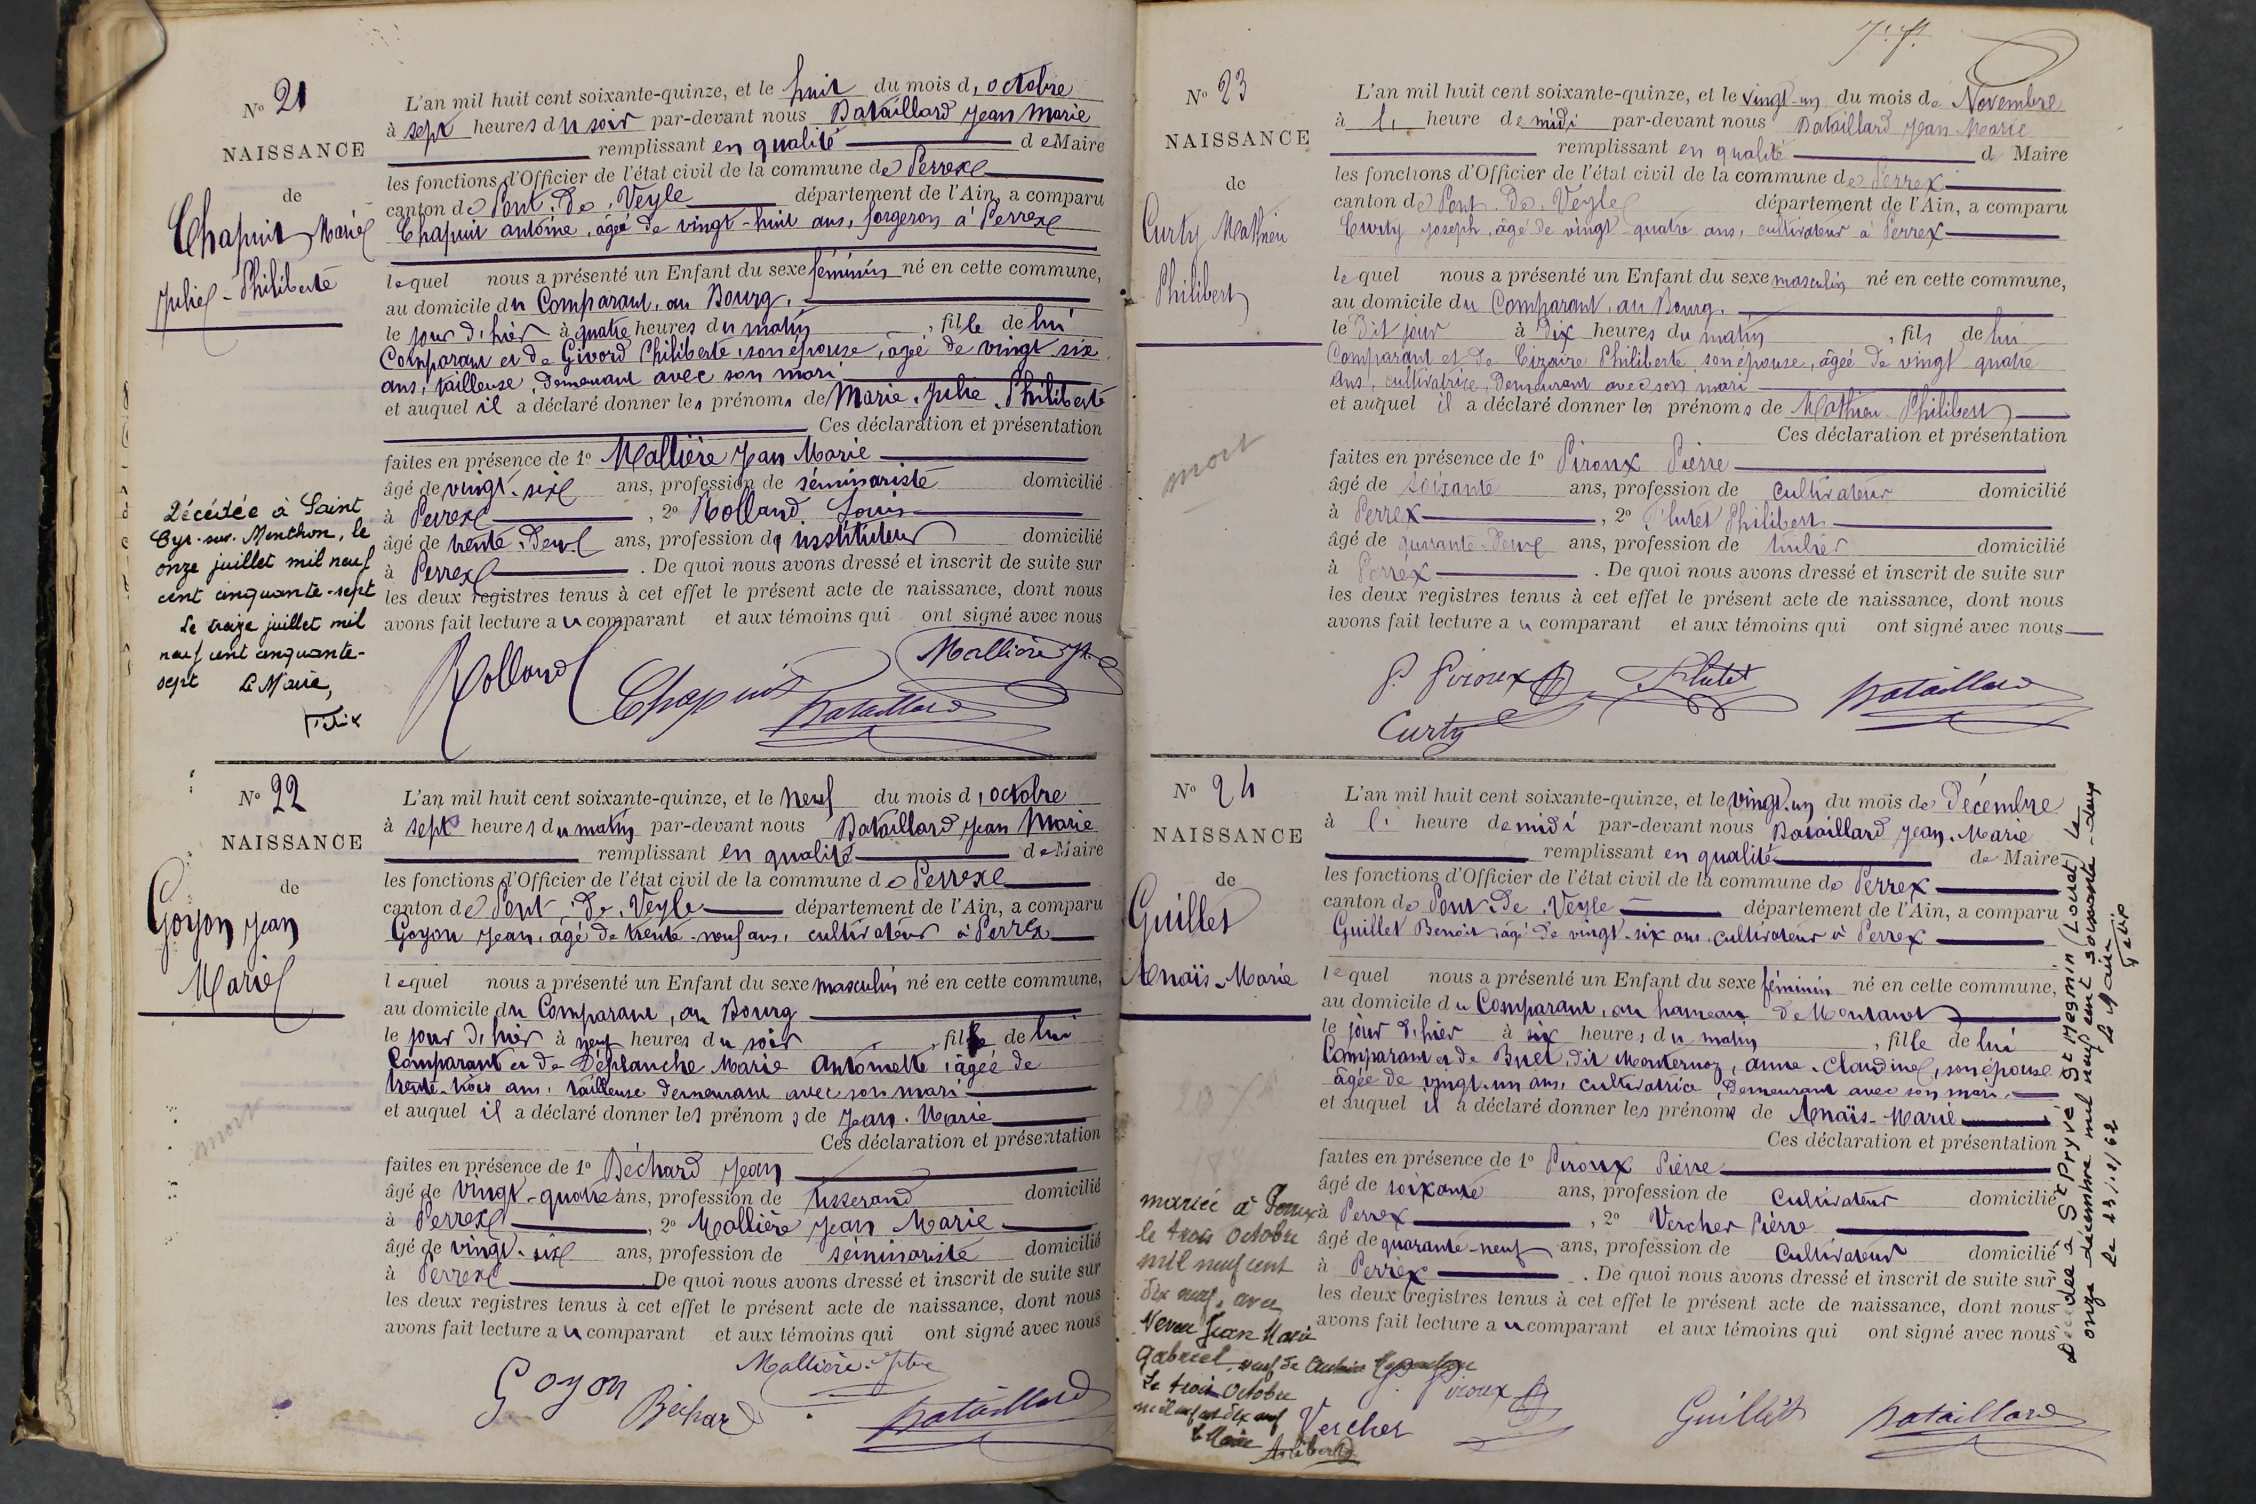 N° 21
NAISSANCE
de
Chapuis Marie
Julie - Philiberte
L'an mil huit cent soixante-quinze, et le huit du mois d'octobre
à sept heures du soir par-devant nous Bataillard Jean Marie
remplissant en qualité de Maire
les fonctions d'Officier de l'état civil de la commune de Perrex
canton de Pont-De-Veyle département de l'Ain, a comparu
Chapuis antoine, âgé de vingt-huit ans, forgeron à Perrex
lequel nous a présenté un Enfant du sexe féminin né en cette commune,
au domicile du Comparant, au Bourg,
le jour d'hier à quatre heures du matin, fille de lui
Comparant et de Givord Philiberte, son épouse, âgée de vingt six
ans, tailleuse, demeurant avec son mari
et auquel il a déclaré donner les prénoms de Marie-Julie-Philiberte
Ces déclaration et présentation
faites en présence de 1° Mallière Jean Marie
âgé de vingt-six ans, profession de séminariste domicilié
à Perrex, 2° Rolland Louis
âgé de trente-deux ans, profession d'instituteur domicilié
à Perrex. De quoi nous avons dressé et inscrit de suite sur
les deux registres tenus à cet effet le présent acte de naissance, dont nous
avons fait lecture au comparant et aux témoins qui ont signé avec nous
Décédée à Saint
Cyr-sur-Menthon, le
onze juillet mil neuf
cent cinquante-sept
Le treize juillet mil
neuf cent cinquante-
sept Le Maire,
Rolland Chapuis Mallière Bataillard
N° 22
NAISSANCE
de
Goyon Jean
Marie
mort
L'an mil huit cent soixante-quinze, et le neuf du mois d'octobre
à sept heures du matin par-devant nous Bataillard Jean Marie
remplissant en qualité de Maire
les fonctions d'Officier de l'état civil de la commune de Perrex
canton de Pont-De-Veyle département de l'Ain, a comparu
Goyon Jean, âgé de trente-neuf ans, cultivateur à Perrex
lequel nous a présenté un Enfant du sexe masculin né en cette commune,
au domicile du Comparant, au Bourg
le jour d'hier à neuf heures du soir, fils de lui
Comparant et de Déplanche Marie Antoinette, âgée de
trente-trois ans, tailleuse demeurant avec son mari
et auquel il a déclaré donner les prénoms de Jean-Marie
Ces déclaration et présentation
faites en présence de 1° Béchard Jean
âgé de vingt-quatre ans, profession de tisserand domicilié
à Perrex, 2° Mallière Jean Marie
âgé de vingt-six ans, profession de séminariste domicilié
à Perrex De quoi nous avons dressé et inscrit de suite sur
les deux registres tenus à cet effet le présent acte de naissance, dont nous
avons fait lecture au comparant et aux témoins qui ont signé avec nous
Goyon Béchard Mallière Bataillard
N° 23
NAISSANCE
de
Curty Mathieu
Philibert
mort
L'an mil huit cent soixante-quinze, et le vingt-un du mois de Novembre
à heure de midi par-devant nous Bataillard Jean Marie
remplissant en qualité d Maire
les fonctions d'Officier de l'état civil de la commune de Perrex
canton de Pont-De-Veyle département de l'Ain, a comparu
Curty Joseph, âgé de vingt-quatre ans, cultivateur à Perrex
lequel nous a présenté un Enfant du sexe masculin né en cette commune,
au domicile du Comparant, au Bourg,
le dit jour à dix heures du matin, fils de lui
Comparant et de Cizaire Philiberte son épouse, âgée de vingt quatre
ans, cultivatrice, demeurant avec son mari
et auquel il a déclaré donner les prénoms de Mathieu Philibert
Ces déclaration et présentation
faites en présence de 1° Piroux Pierre
âgé de soixante ans, profession de cultivateur domicilié
à Perrex, 2° Plutet Philibert
âgé de quarante-deux ans, profession de tuilier domicilié
à Perrex. De quoi nous avons dressé et inscrit de suite sur
les deux registres tenus à cet effet le présent acte de naissance, dont nous
avons fait lecture au comparant et aux témoins qui ont signé avec nous
P. Piroux Plutet Bataillard
Curty
N° 24
NAISSANCE
de
Guillet
Anaïs-Marie
L'an mil huit cent soixante-quinze, et le vingt-un du mois de Décembre
à heure de midi par-devant nous Bataillard Jean-Marie
remplissant en qualité de Maire
les fonctions d'Officier de l'état civil de la commune de Perrex
canton de Pont-De-Veyle département de l'Ain, a comparu
Guillet Benoit, âgé de vingt-six ans, cultivateur à Perrex
lequel nous a présenté un Enfant du sexe féminin né en cette commune,
au domicile du Comparant, au hameau de Montanot
le jour d'hier à six heures du matin, fille de lui
Comparant et de Buet dit Monternoz, anne-Claudine, son épouse
âgée de vingt-un ans, cultivatrice, demeurant avec son mari,
et auquel il a déclaré donner les prénoms de Anaïs-Marie
Ces déclaration et présentation
faites en présence de 1° Piroux Pierre
âgé de soixante ans, profession de cultivateur domicilié
à Perrex, 2° Vercher Pierre
âgé de quarante-neuf ans, profession de cultivateur domicilié
à Perrex. De quoi nous avons dressé et inscrit de suite sur
les deux registres tenus à cet effet le présent acte de naissance, dont nous
avons fait lecture au comparant et aux témoins qui ont signé avec nous
mariée à Perrex
le trois octobre
mil neuf cent
dix neuf, avec
Jean Marie
Gabriel, veuf de
Le trois octobre
mil neuf cent dix neuf
Le Maire
P. Piroux
Vercher Guillet Bataillard
Décédée à St Pryvé St Mesmin (Loiret) le
onze décembre mil neuf cent soixante-deux
le 13/12/62 Le Maire